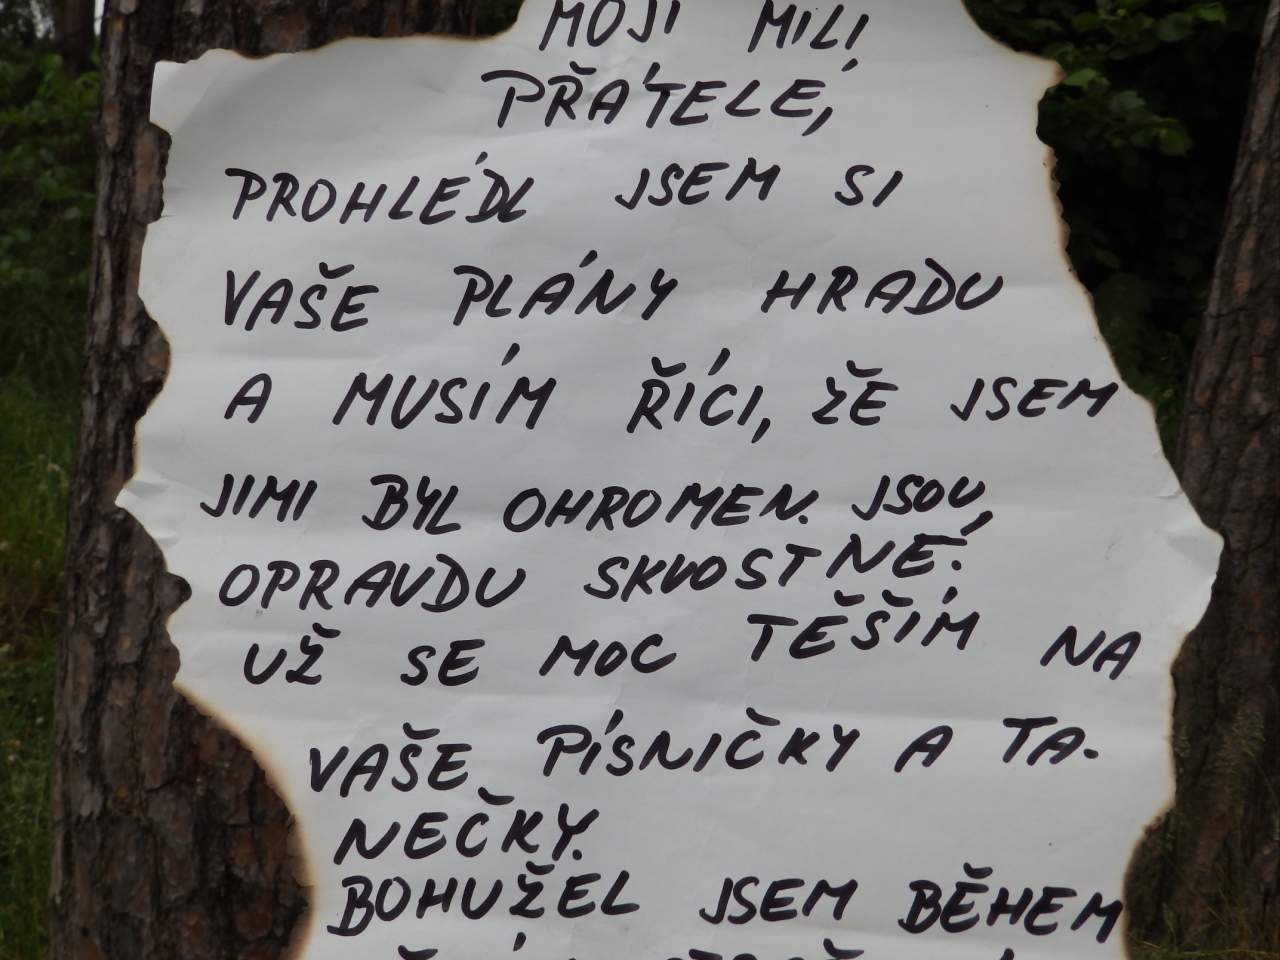 MOJI MILI
PŘÁTELÉ,
PROHLÉDL JSEM SI
VAŠE PLÁNY HRADU
A MUSÍM ŘÍCI, ŽE JSEM
JIMI BYL OHROMEN. JSOU,
OPRAVDU SKVOSTNÉ.
UŽ SE MOC TĚŠÍM NA
VAŠE PÍSNIČKY A TA-
NEČKY.
BOHUŽEL JSEM BĚHEM